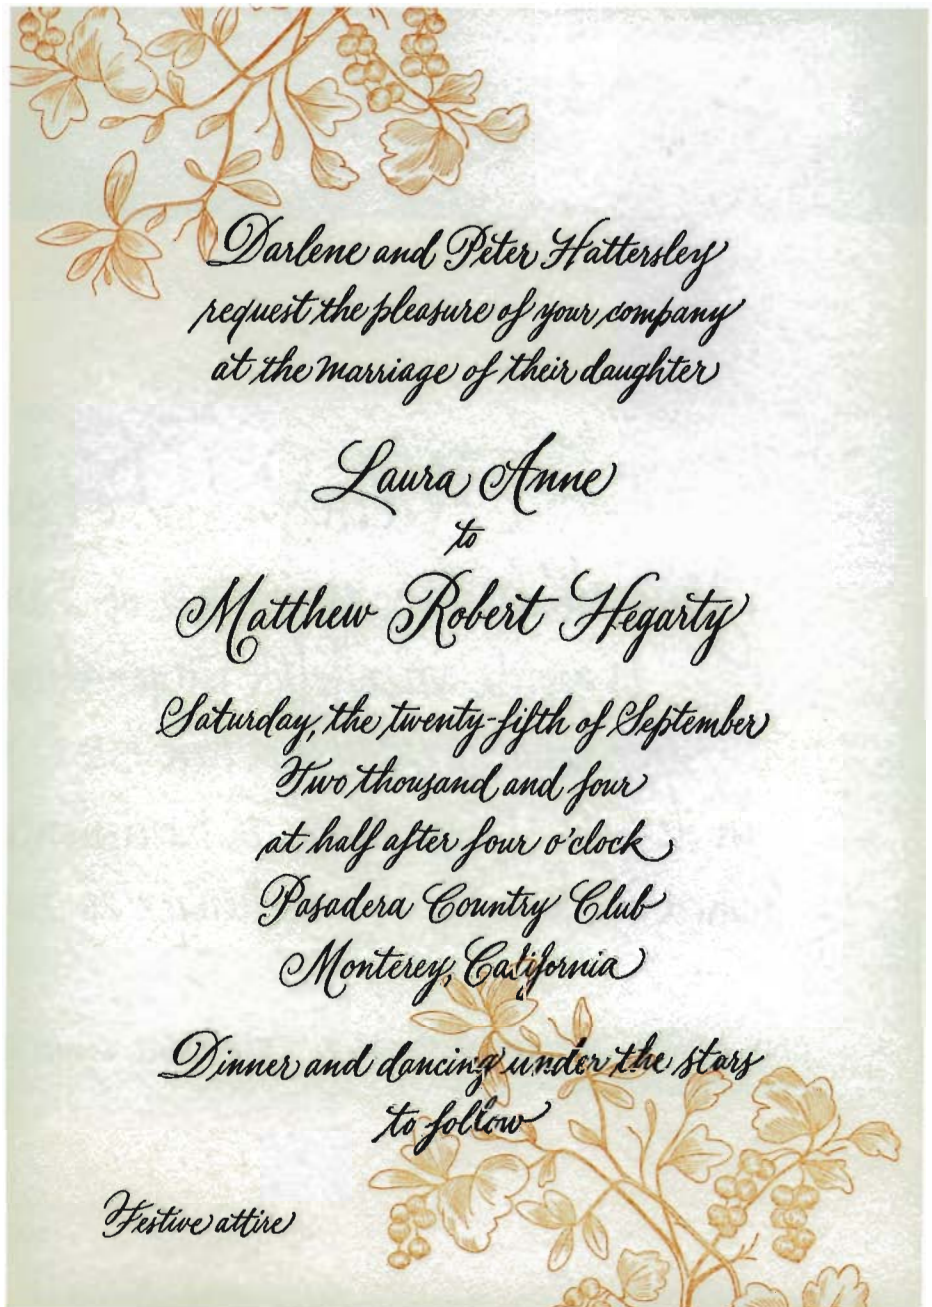 Darlene and Peter Hattersley
request the pleasure of your company
at the marriage of their daughter
Laura Anne
to
Matthew Robert Hegarty
Saturday, the twenty-fifth of September
Two thousand and four
at half after four o'clock
Pasadera Country Club
Monterey, California
Dinner and dancing under the stars
to follow
Festive attire